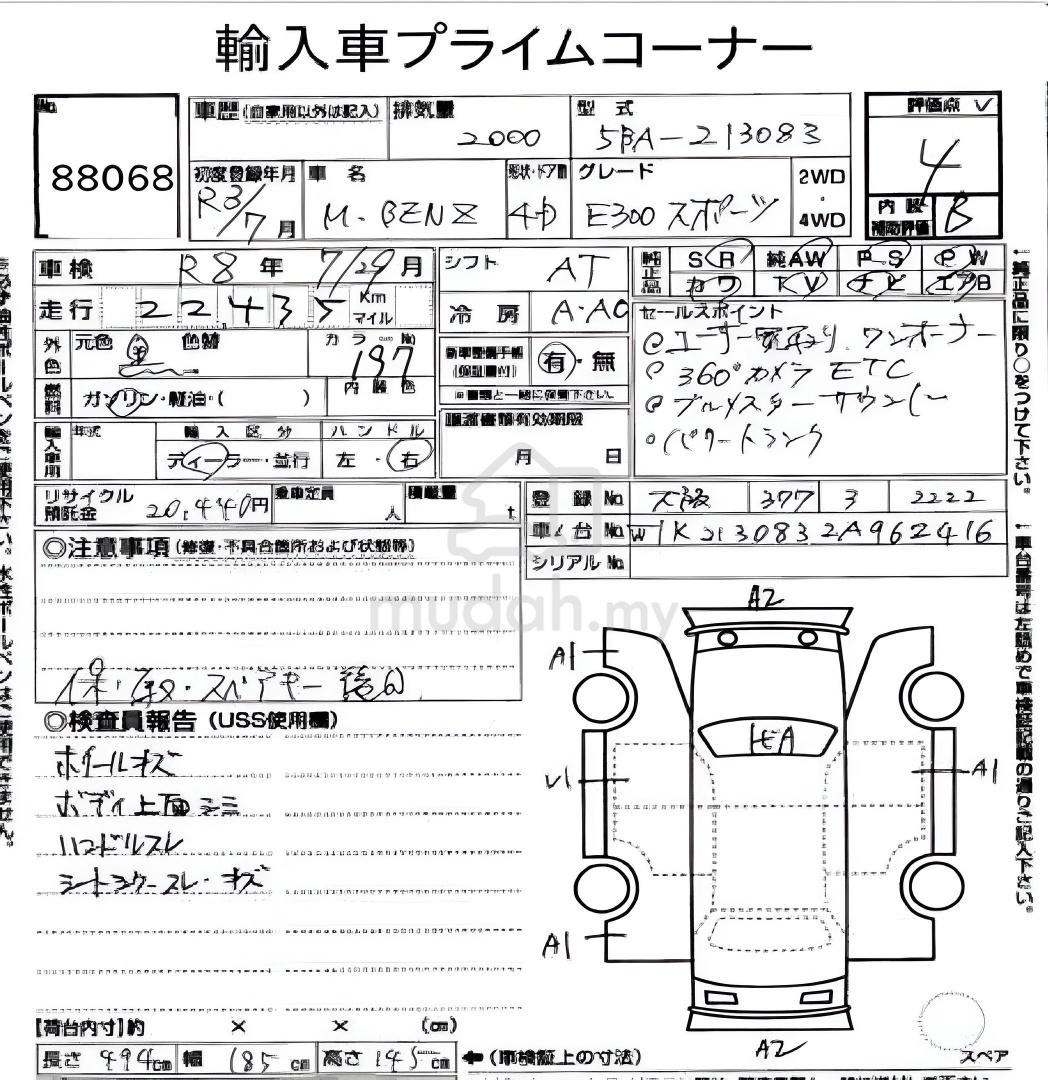 輸入車プライムコーナー
No.
88068
車歴 (自家用以外は記入)
排気量
2000
型式
5BA-213083
評価点
4
初度登録年月
R3/7月
車名
M.BENZ
形状・ドア数
4D
グレード
E300 スポーツ
2WD
・
4WD
内装
補助評価
B
車検 R8年 7/29月
シフト AT
純正品
SR 純AW PS PW
カワ TV ナビ エアB
走行 22435 Km マイル
冷房 A・AC
セールスポイント
ユーザー買取り ワンオーナー
360°カメラ ETC
ブルメスターサウンド
パワートランク
外色 元色 色替
カラーNo.
197
新車整備手帳
(保証書付)
有・無
内装色
燃料
ガソリン・軽油・( )
輸入車用
年式
輸入区分
ディーラー・並行
ハンドル
左・右
月 日
リサイクル
預託金
20,440円
乗車定員
人
積載量
t
登録No. 大阪 377 3 2222
車台No. W1K2130832A962416
シリアルNo.
◎注意事項 (修復・不具合箇所および状態等)
mudah.my
保・取・スペアキー
◎検査員報告 (USS使用欄)
ホイールキズ
ボディ上面シミ
ハンドルスレ
シートスレ・キズ
A2
A1
A1
A1
A2
【荷台内寸】約 × × (cm)
長さ 494cm 幅 185cm 高さ 145cm
(車検証上の寸法)
スペア
純正品に限り○をつけて下さい。
車台番号は左詰めで車検証記載の通りご記入下さい。